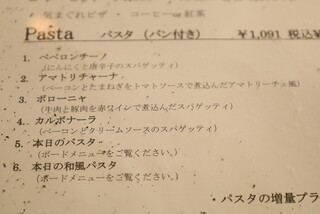 気まぐれピザ ・ コーヒーor紅茶
Pasta パスタ （パン付き） ￥1,091 税込￥
1. ペペロンチーノ
（にんにくと唐辛子のスパゲッティ）
2. アマトリチャーナ
（ベーコンとたまねぎをトマトソースで煮込んだアマトリーチェ風）
3. ボローニャ
（牛肉と豚肉を赤ワインで煮込んだスパゲッティ）
4. カルボナーラ
（ベーコンとクリームソースのスパゲッティ）
5. 本日のパスタ
（ボードメニューをご覧ください。）
6. 本日の和風パスタ
（ボードメニューをご覧ください。）
・パスタの増量プラ